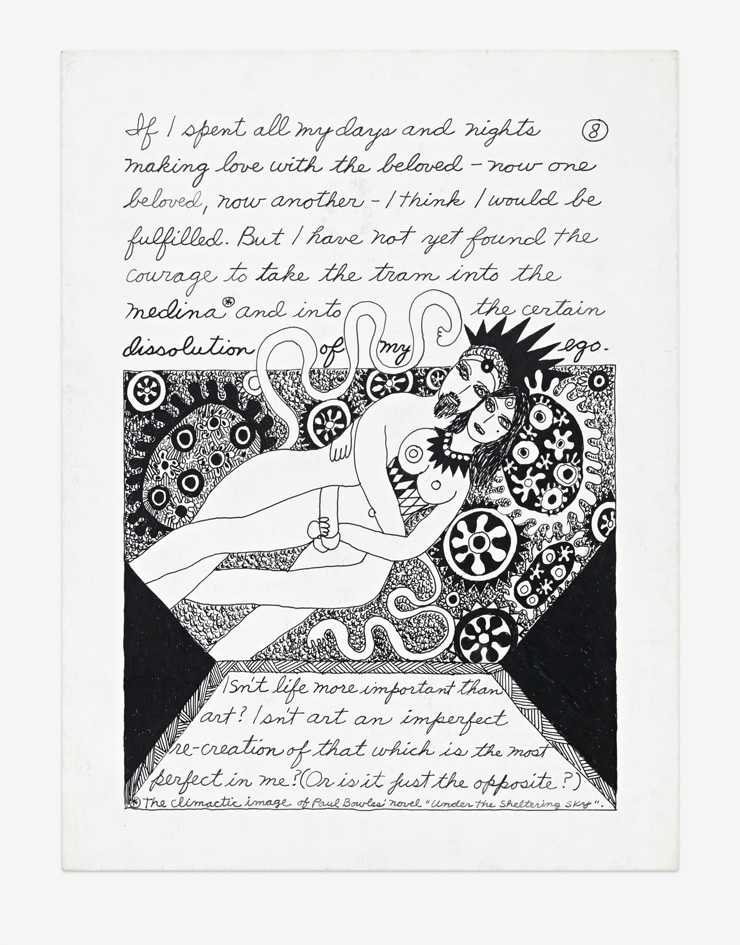 If I spent all my days and nights ⑧
making love with the beloved – now one
beloved, now another – I think I would be
fulfilled. But I have not yet found the
courage to take the tram into the
medina⊛ and into the certain
dissolution of my ego.
Isn't life more important than
art? Isn't art an imperfect
re-creation of that which is the most
perfect in me? (Or is it just the opposite?)
⊛ The climactic image of Paul Bowles' novel "Under the Sheltering Sky".